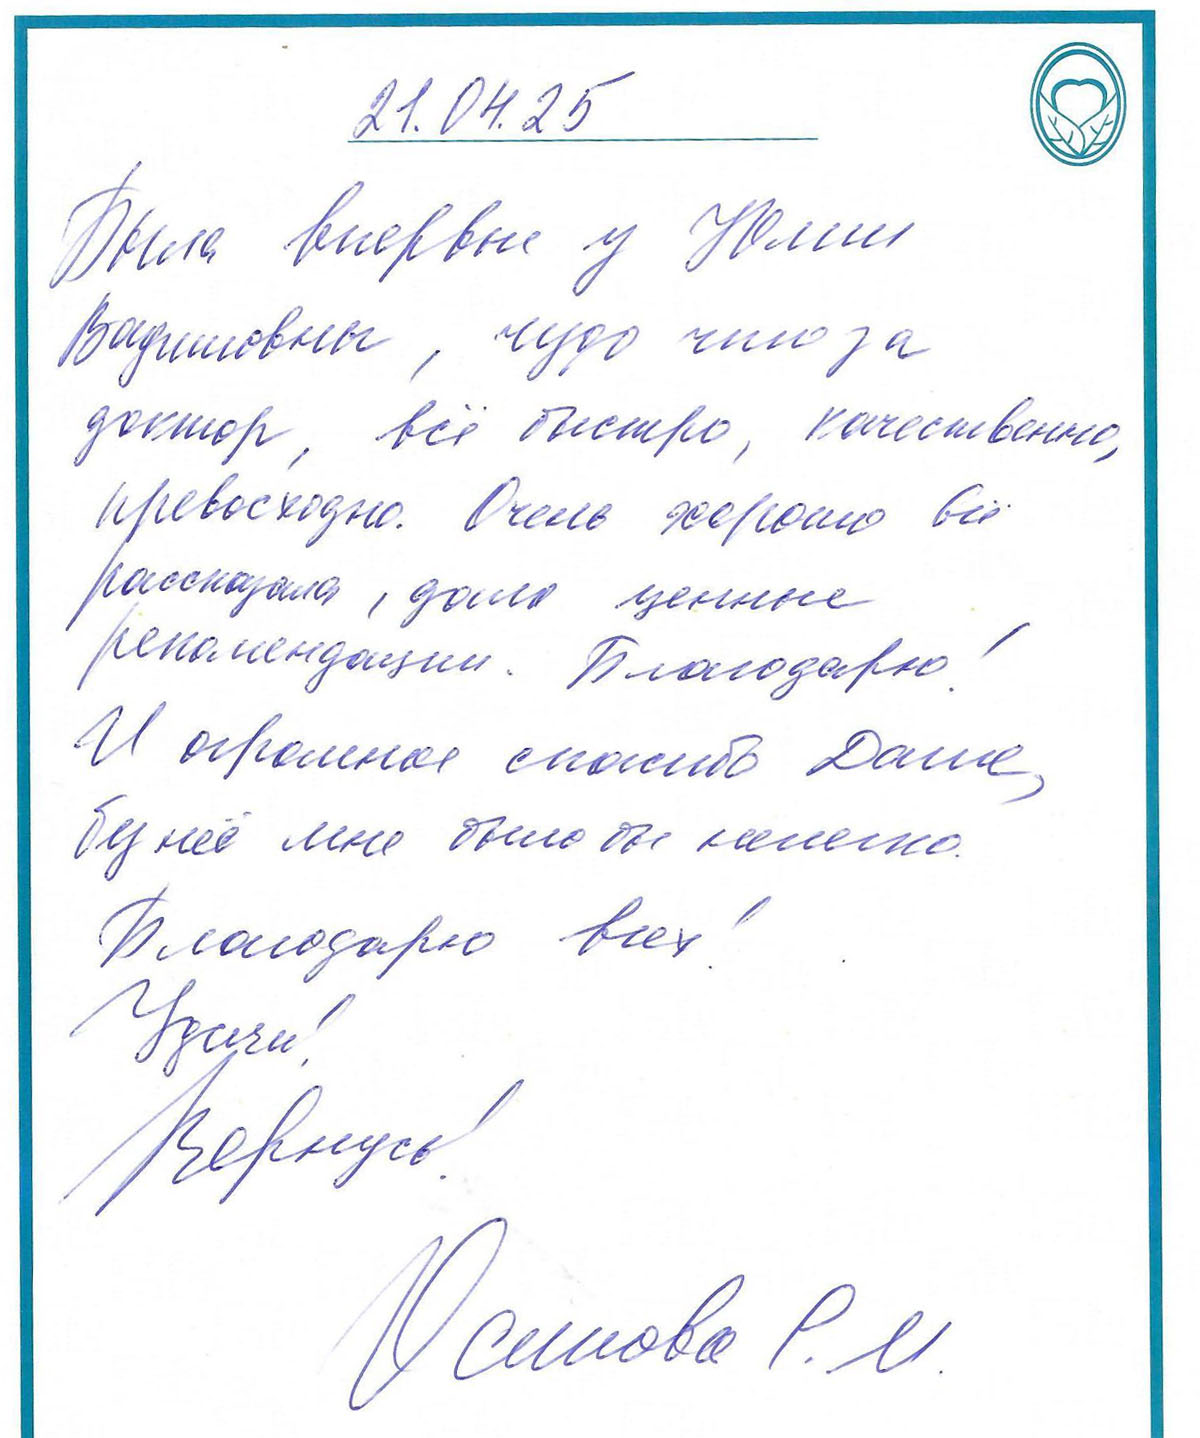 21.04.25
Была впервые у Юлии
Вадимовны, чудо что за
доктор, всё быстро, качественно,
превосходно. Очень хорошо всё
рассказала, дала ценные
рекомендации. Благодарю!
И огромное спасибо Даше,
без неё мне было бы нелегко.
Благодарю всех!
Удачи!
Вернусь!
Р. И.